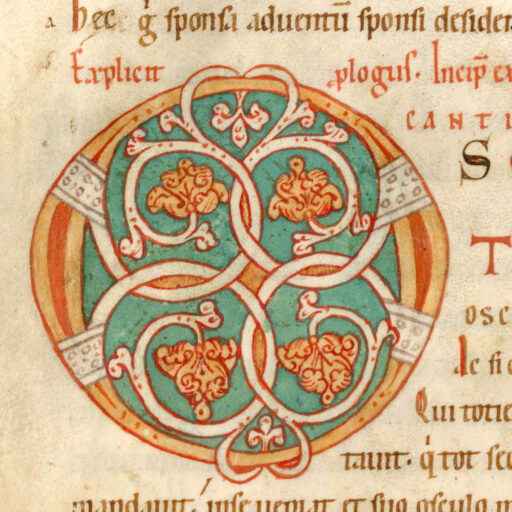 hec q̃ sponsa aduentũ sponsi desider
Explicit plogus. Incip̃ ex
CANTI
S
T
osc
le si
Qui totie
tauit. q̃ tot sec
mandauit. ipse ueniat et suo osculo